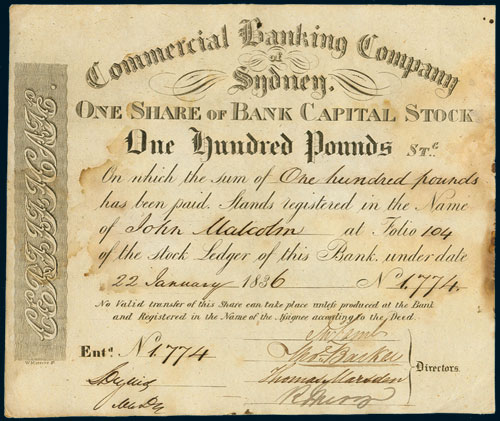 Commercial Banking Company
of
Sydney.
ONE SHARE OF BANK CAPITAL STOCK
One Hundred Pounds STG.
On which the sum of One hundred pounds
has been paid. Stands registered in the Name
of John Malcolm at Folio 104
of the stock Ledger of this Bank. under date
22 January 1836 No. 1.774
No Valid transfer of this Share can take place unless produced at the Bank
and Registered in the Name of the Assignee according to the Deed.
Entd. No. 1.774
Thos. Barker
Thomas Marsden
Directors.